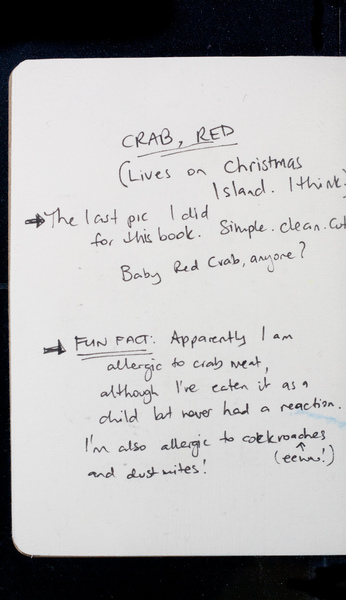 CRAB, RED
(Lives on Christmas
Island. I think.)
The last pic I did
for this book. Simple. clean. Cut
Baby Red Crab, anyone?
FUN FACT: Apparently I am
allergic to crab meat,
although I've eaten it as a
child but never had a reaction.
I'm also allergic to cockroaches
(eeww!)
and dust mites!